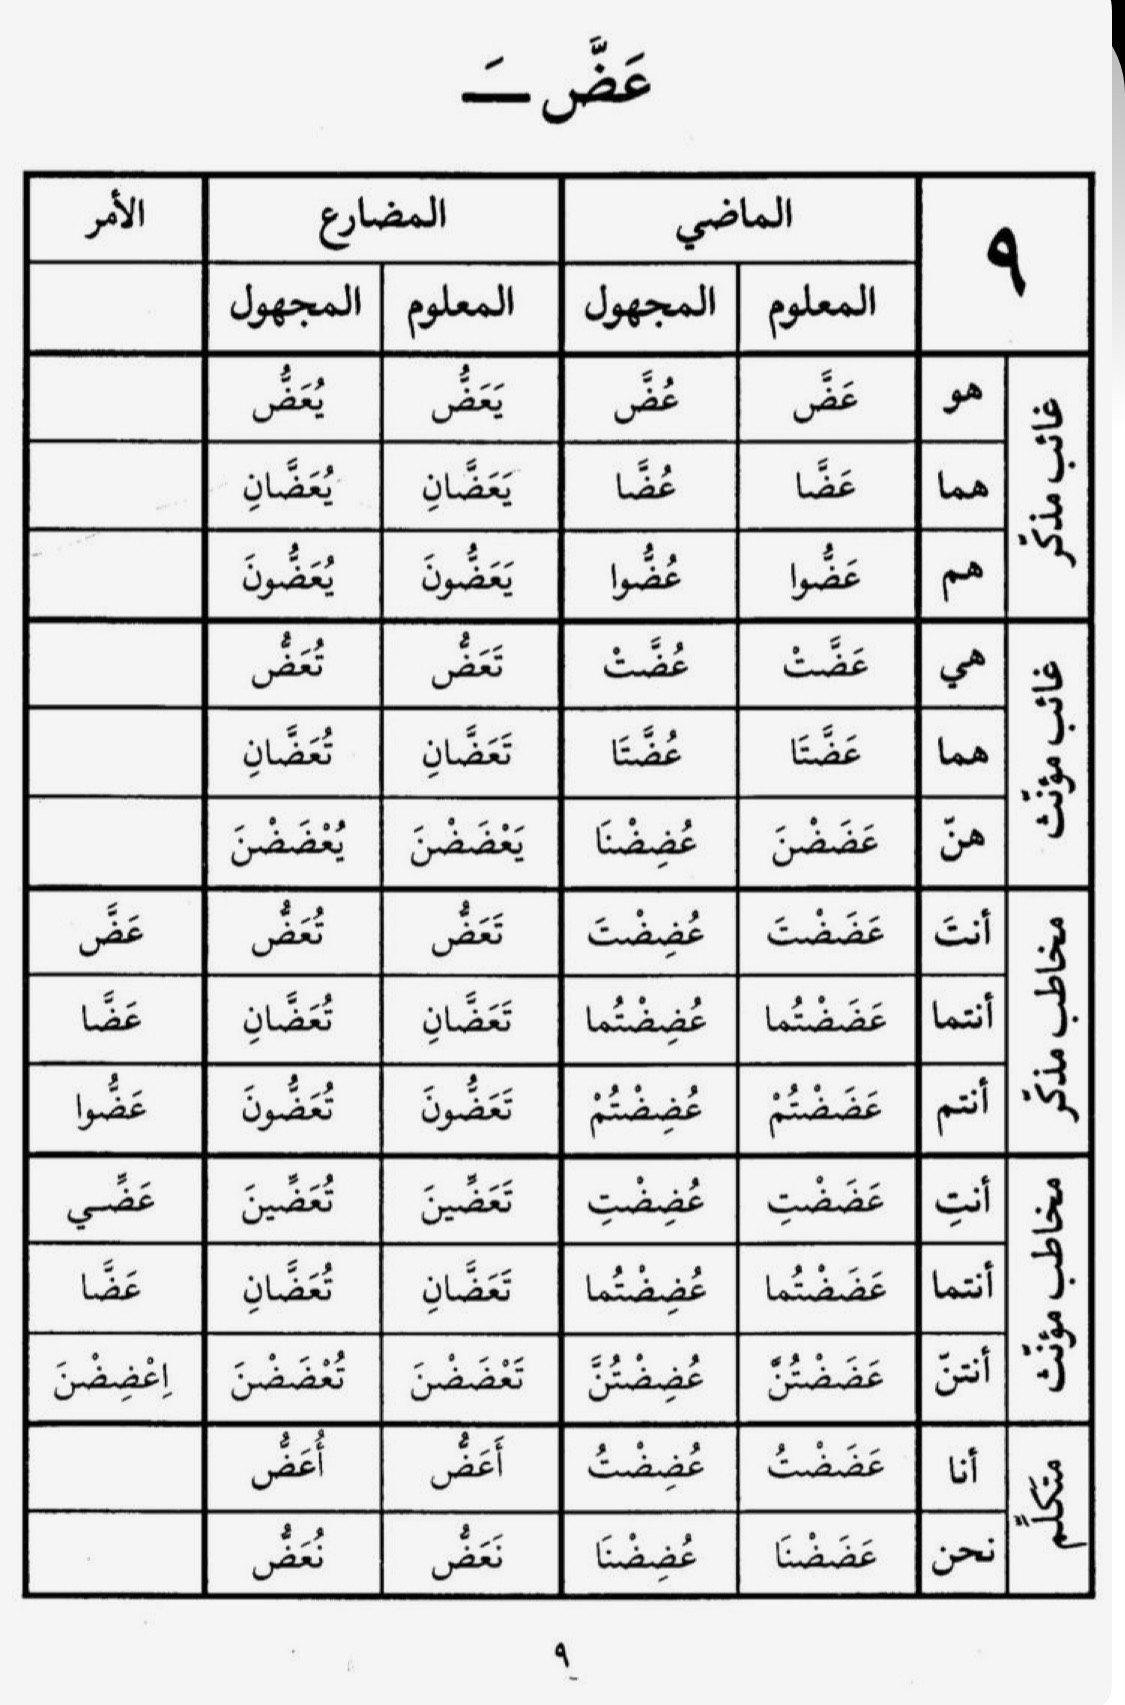 عَضَّ ــَـ
٩ الماضي المضارع الأمر
المعلوم المجهول المعلوم المجهول
غائب مذكّر
هو عَضَّ عُضَّ يَعَضُّ يُعَضُّ
هما عَضَّا عُضَّا يَعَضَّانِ يُعَضَّانِ
هم عَضُّوا عُضُّوا يَعَضُّونَ يُعَضُّونَ
غائب مؤنّث
هي عَضَّتْ عُضَّتْ تَعَضُّ تُعَضُّ
هما عَضَّتَا عُضَّتَا تَعَضَّانِ تُعَضَّانِ
هنّ عَضَضْنَ عُضِضْنَا يَعْضَضْنَ يُعْضَضْنَ
مخاطب مذكّر
أنتَ عَضَضْتَ عُضِضْتَ تَعَضُّ تُعَضُّ عَضَّ
أنتما عَضَضْتُما عُضِضْتُما تَعَضَّانِ تُعَضَّانِ عَضَّا
أنتم عَضَضْتُمْ عُضِضْتُمْ تَعَضُّونَ تُعَضُّونَ عَضُّوا
مخاطب مؤنّث
أنتِ عَضَضْتِ عُضِضْتِ تَعَضِّينَ تُعَضِّينَ عَضِّـي
أنتما عَضَضْتُما عُضِضْتُما تَعَضَّانِ تُعَضَّانِ عَضَّا
أنتنّ عَضَضْتُنَّ عُضِضْتُنَّ تَعْضَضْنَ تُعْضَضْنَ اِعْضِضْنَ
متكلَّم
أنا عَضَضْتُ عُضِضْتُ أَعَضُّ أُعَضُّ
نحن عَضَضْنَا عُضِضْنَا نَعَضُّ نُعَضُّ
٩